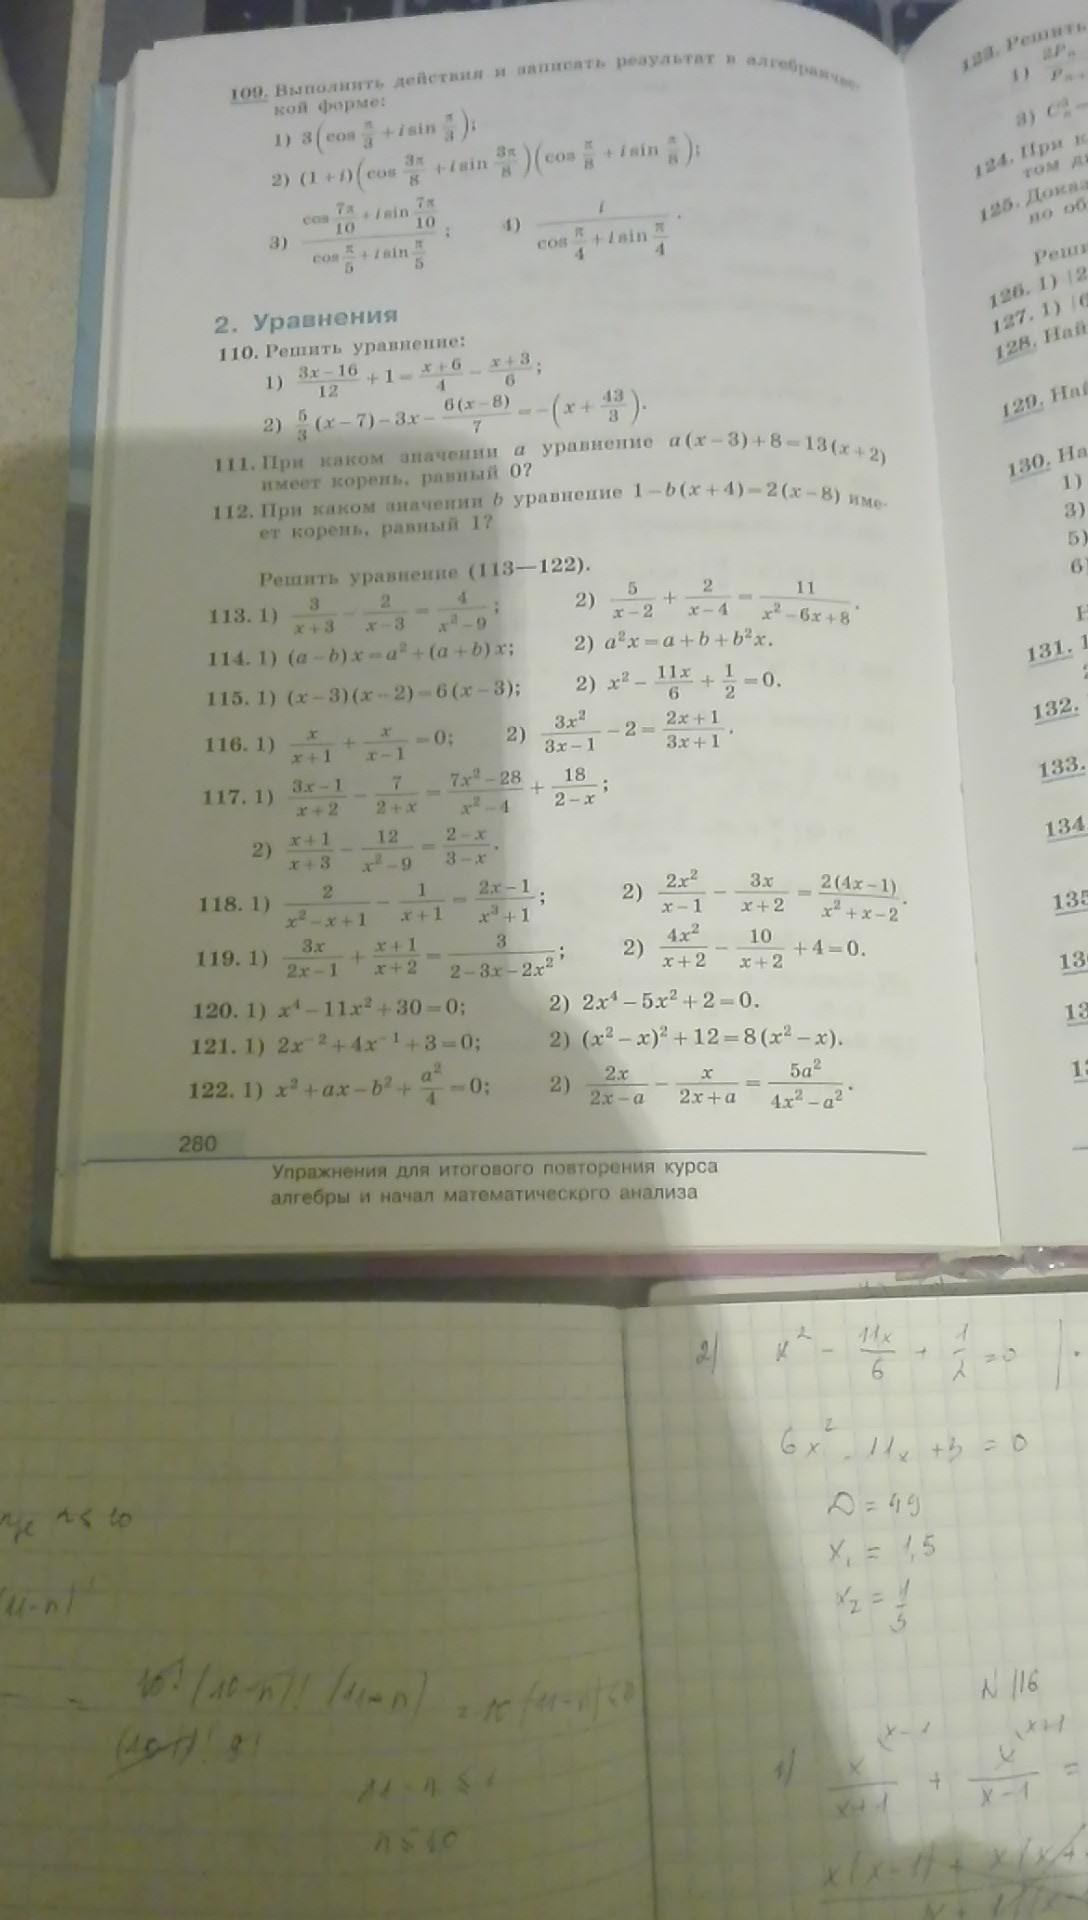 109. Выполнить действия и записать результат в алгебраичес-
кой форме:
1) 3(cos π/3 + i sin π/3);
2) (1 + i)(cos 3π/8 + i sin 3π/8)(cos π/8 + i sin π/8);
3) (cos 7π/10 + i sin 7π/10)/(cos π/5 + i sin π/5); 4) i/(cos π/4 + i sin π/4).
2. Уравнения
110. Решить уравнение:
1) (3x − 16)/12 + 1 = (x + 6)/4 − (x + 3)/6;
2) 5/3 (x − 7) − 3x − 6(x − 8)/7 = −(x + 43/3).
111. При каком значении a уравнение a(x − 3) + 8 = 13(x + 2)
имеет корень, равный 0?
112. При каком значении b уравнение 1 − b(x + 4) = 2(x − 8) име-
ет корень, равный 1?
Решить уравнение (113—122).
113. 1) 3/(x + 3) − 2/(x − 3) = 4/(x² − 9); 2) 5/(x − 2) + 2/(x − 4) = 11/(x² − 6x + 8).
114. 1) (a − b)x = a² + (a + b)x; 2) a²x = a + b + b²x.
115. 1) (x − 3)(x − 2) = 6(x − 3); 2) x² − 11x/6 + 1/2 = 0.
116. 1) x/(x + 1) + x/(x − 1) = 0; 2) 3x²/(3x − 1) − 2 = (2x + 1)/(3x + 1).
117. 1) (3x − 1)/(x + 2) − 7/(2 + x) = (7x² − 28)/(x² − 4) + 18/(2 − x);
2) (x + 1)/(x + 3) − 12/(x² − 9) = (2 − x)/(3 − x).
118. 1) 2/(x² − x + 1) − 1/(x + 1) = (2x − 1)/(x³ + 1); 2) 2x²/(x − 1) − 3x/(x + 2) = 2(4x − 1)/(x² + x − 2).
119. 1) 3x/(2x − 1) + (x + 1)/(x + 2) = 3/(2 − 3x − 2x²); 2) 4x²/(x + 2) − 10/(x + 2) + 4 = 0.
120. 1) x⁴ − 11x² + 30 = 0; 2) 2x⁴ − 5x² + 2 = 0.
121. 1) 2x⁻² + 4x⁻¹ + 3 = 0; 2) (x² − x)² + 12 = 8(x² − x).
122. 1) x² + ax − b² + a²/4 = 0; 2) 2x/(2x − a) − x/(2x + a) = 5a²/(4x² − a²).
280
Упражнения для итогового повторения курса
алгебры и начал математического анализа
123. Решить
1) 2Pn
3)
124. При к
том
125. Дока
но об
Реши
126. 1) |2
127. 1) |6
128. Най
129. Най
130. На
1)
3)
5)
6)
131. 1
132.
133.
134
135
2) x² − 11x/6 + 1/2 = 0 | ·
6x² − 11x + 3 = 0
D = 49
x₁ = 1,5
x₂ =
N 116
1) x/(x+1) + x/(x−1) =
11 − n ≤ 1
n ≤ 10